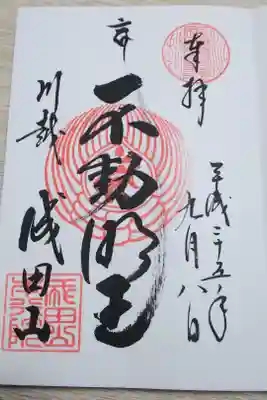 奉拝
平成二十五年
九月八日
不動明王
川越
成田山